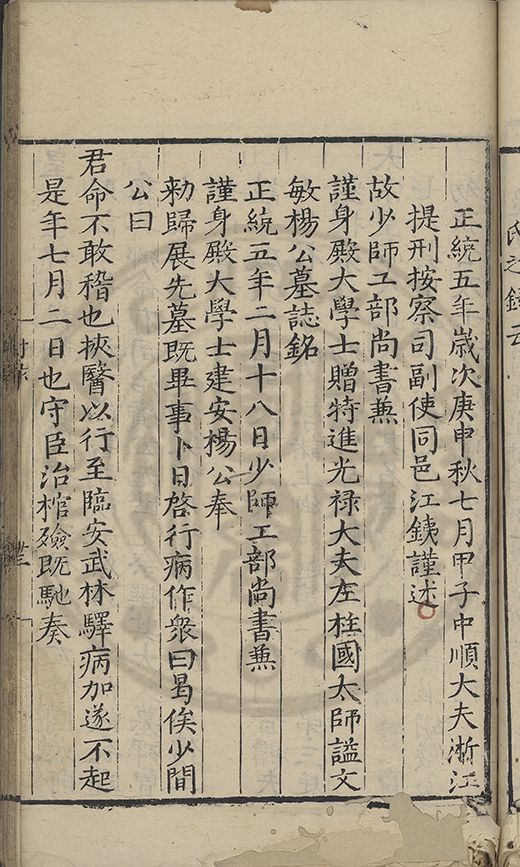 氏之錄云
正統五年歲次庚申秋七月甲子中順大夫浙江
提刑按察司副使同邑江銕謹述
故少師工部尚書兼
謹身殿大學士贈特進光祿大夫左柱國太師謚文
敏楊公墓誌銘
正統五年二月十八日少師工部尚書兼
謹身殿大學士建安楊公奉
勑歸展先墓既畢事卜日啓行病作衆曰曷俟少間
公曰
君命不敢稽也挾醫以行至臨安武林驛病加遂不起
是年七月二日也守臣治棺殮既馳奏
附錄